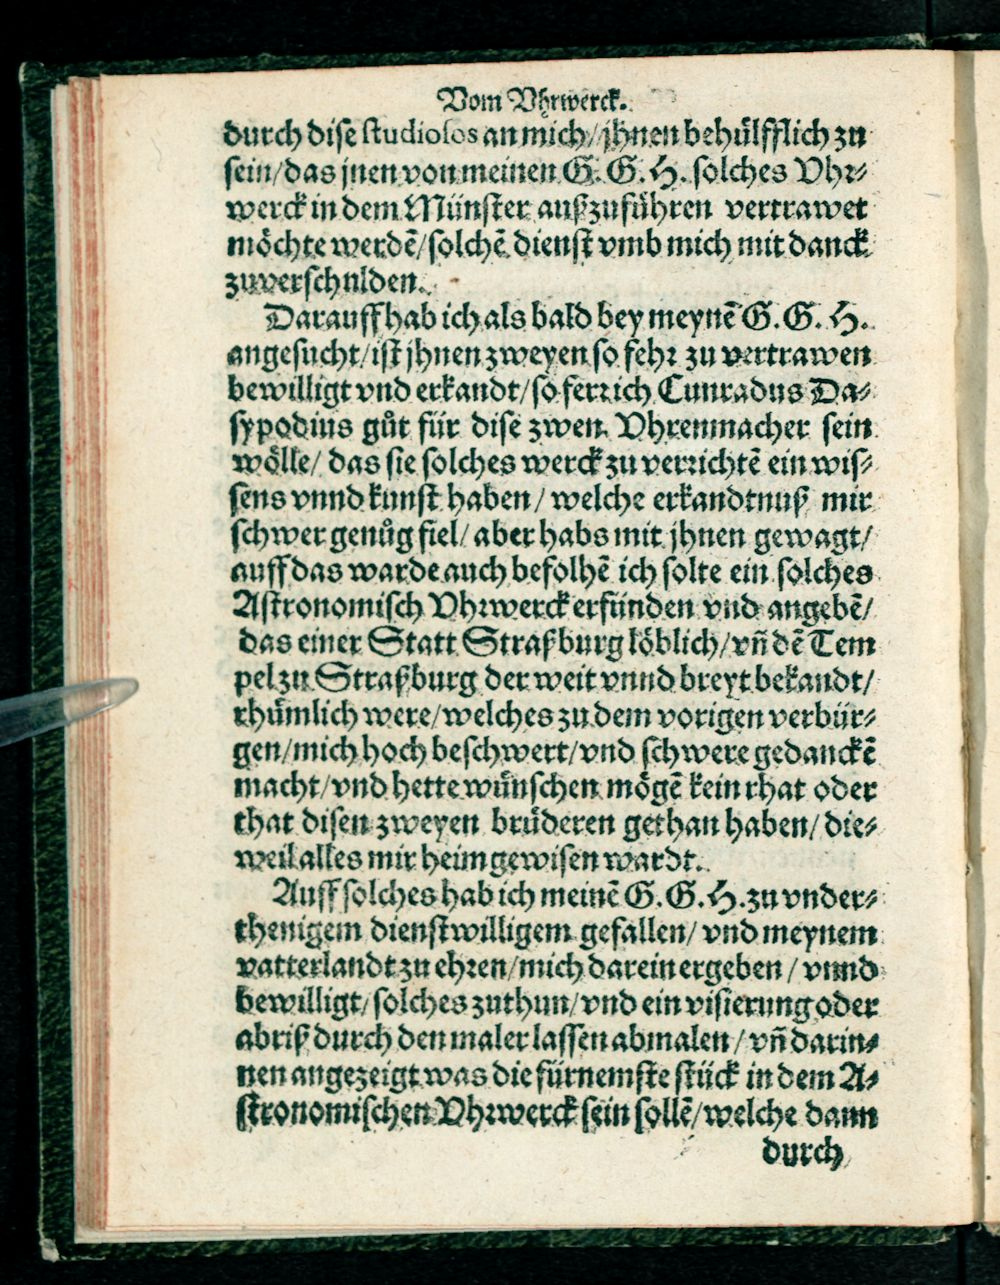 Vom Vhrwerck.
durch dise studiosos an mich/jhnen behülfflich zu
sein/das jnen von meinen G. G. H. solches Vhr⸗
werck in dem Münster außzuführen vertrawet
möchte werdẽ/solchẽ dienst vmb mich mit danck
zuverschulden.
Darauff hab ich als bald bey meynẽ G. G. H.
angesucht/ist jhnen zweyen so fehr zu vertrawen
bewilligt vnd erkandt/so ferr ich Cunradus Da⸗
sypodius gůt für dise zwen Vhrenmacher sein
wölle/ das sie solches werck zu verrichtẽ ein wis⸗
sens vnnd kunst haben/ welche erkandtnuß mir
schwer genůg fiel/ aber habs mit jhnen gewagt/
auff das warde auch befolhẽ ich solte ein solches
Astronomisch Vhrwerck erfünden vnd angebẽ/
das einer Statt Straßburg löblich/vñ dẽ Tem
pel zu Straßburg der weit vnnd breyt bekandt/
rhümlich were/welches zu dem vorigen verbür⸗
gen/mich hoch beschwert/vnd schwere gedanckẽ
macht/vnd hette wünschen mögẽ kein rhat oder
that disen zweyen brüderen gethan haben/ die⸗
weil alles mir heim gewisen wardt.
Auff solches hab ich meinẽ G. G. H. zu vnder⸗
thenigem dienstwilligem gefallen/ vnd meynem
vatterlandt zu ehren/mich darein ergeben/ vnnd
bewilligt/solches zuthun/vnd ein visierung oder
abriß durch den maler lassen abmalen/ vñ darin⸗
nen angezeigt was die fürnemste stück in dem A⸗
stronomischen Vhrwerck sein sollẽ/welche dann
durch